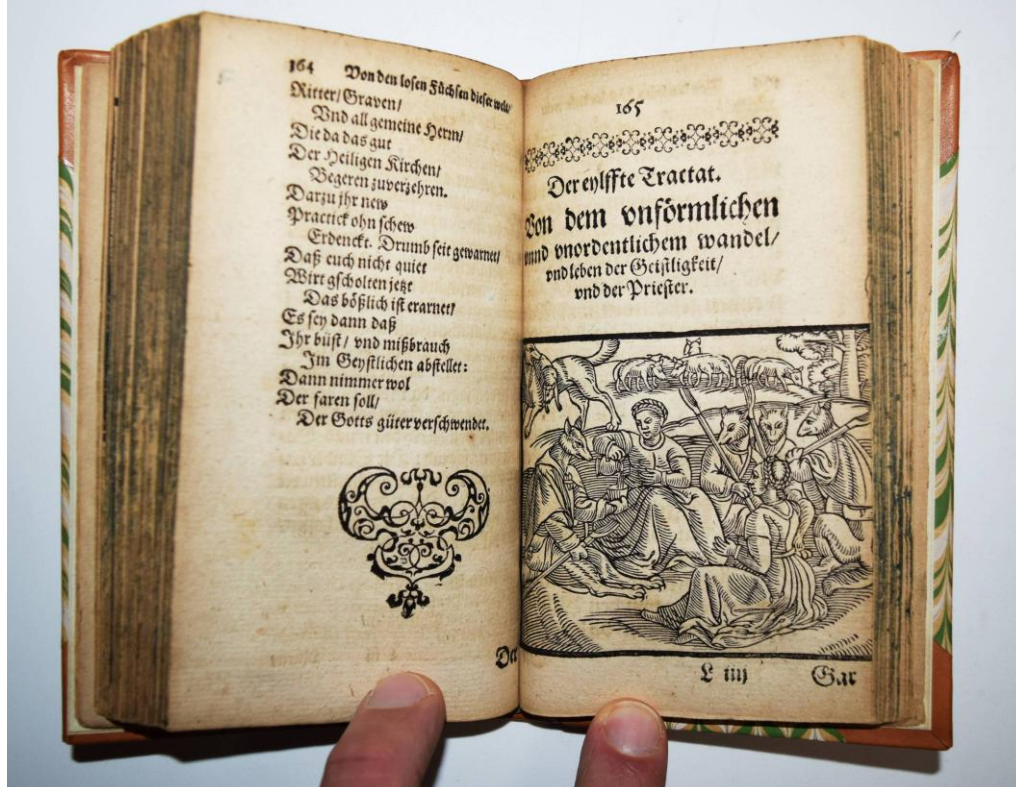 164 Von den losen Füchsen dieser welt/
Ritter/Graven/
Vnd all gemeine Herrn/
Die da das gut
Der Heiligen Kirchen/
Begeren zuverzehren.
Darzu jhr new
Practick ohn schew
Erdenckt. Drumb seit gewarnet/
Daß euch nicht quiet
Wirt gscholten jetzt
Das bößlich ist erarnet/
Es sey dann daß
Jhr büst/ vnd mißbrauch
Im Geystlichen abstellet:
Dann nimmer wol
Der faren soll/
Der Gotts güter verschwendet.
Der
165
Der eylffte Tractat.
Von dem vnförmlichen
vnnd vnordentlichem wandel/
vnd leben der Geistligkeit/
vnd der Priester.
L iiij Gar